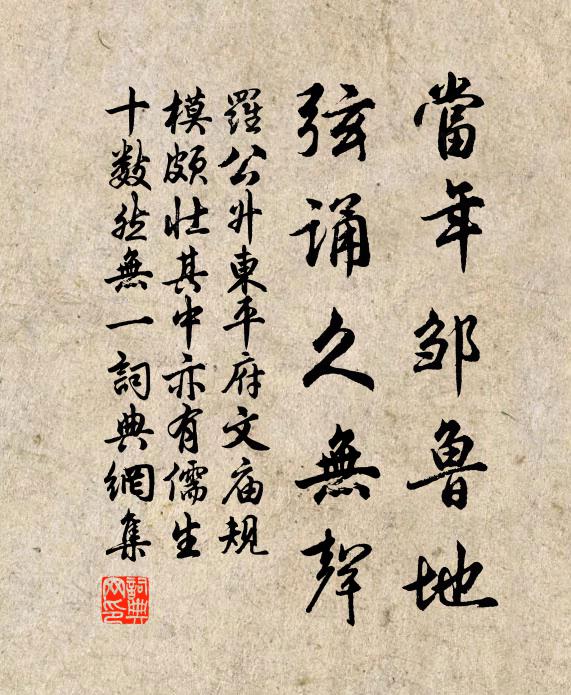 當年邹魯地
弦诵久無聲
羅公升東平府文庙規
模颇壮其中亦有儒生
十数然無一詞典網集
詞典
网印